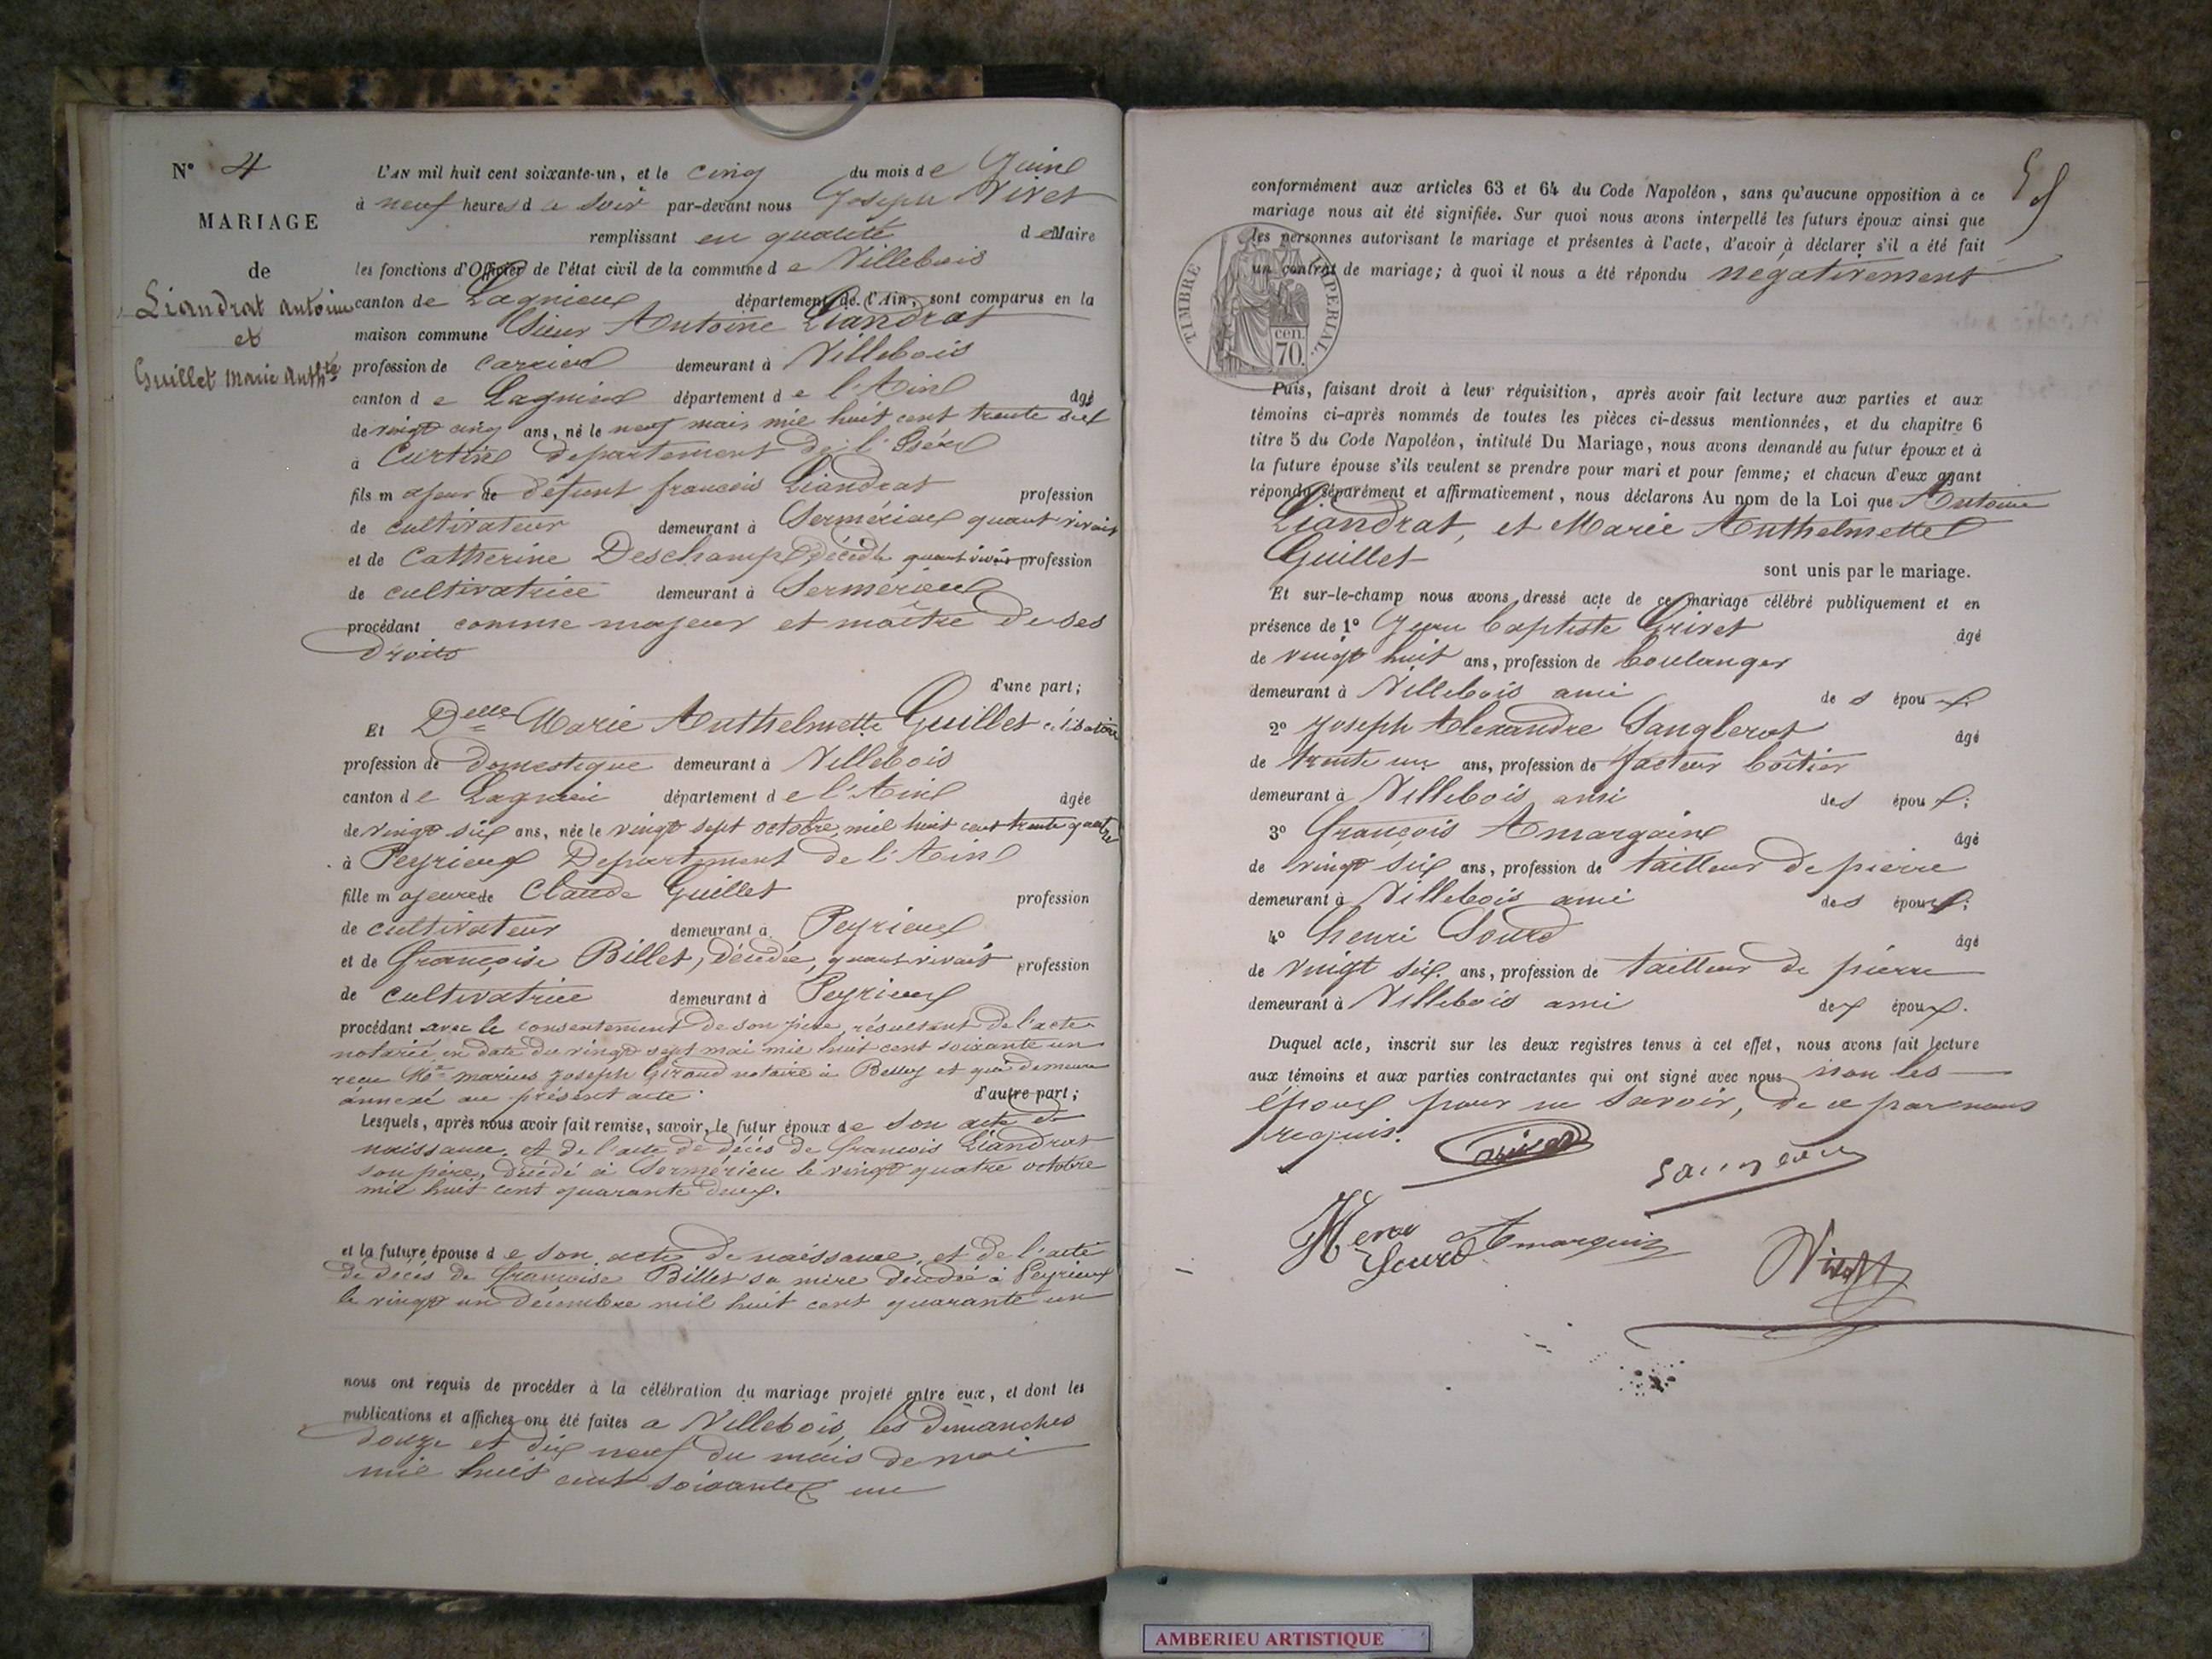 N° 4
MARIAGE
de
Liandrat Antoine
et
Guillet Marie Anth.te
L'AN mil huit cent soixante-un, et le cinq du mois de Juin
à neuf heures du soir par-devant nous Joseph Vivet
remplissant en qualité de Maire
les fonctions d'Officier de l'état civil de la commune de Villebois
canton de Lagnieu département de l'Ain, sont comparus en la
maison commune Sieur Antoine Liandrat
profession de carrier demeurant à Villebois
canton de Lagnieu département de l'Ain âgé
de vingt cinq ans, né le neuf mars mil huit cent trente six
à Curtin departement de l'Isère
fils majeur de défunt françois Liandrat profession
de cultivateur demeurant à Sermérieu quant vivait
et de Catherine Deschamps décédée quant vivait profession
de cultivatrice demeurant à Sermérieu
procédant comme majeur et maître de ses
droits
d'une part;
Et Delle Marie Anthelmette Guillet célibataire
profession de domestique demeurant à Villebois
canton de Lagnieu département de l'Ain âgée
de vingt six ans, née le vingt sept octobre mil huit cent trente quatre
à Peyrieux Departement de l'Ain
fille majeure de Claude Guillet profession
de cultivateur demeurant à Peyrieux
et de françoise Billet, décédée, quant vivait profession
de cultivatrice demeurant à Peyrieux
procédant avec le consentement de son père, résultant de l'acte
notarié en date du vingt sept mai mil huit cent soixante un
reçu Me marius Joseph Giraud notaire à Belley et qui demeure
annexé au présent acte. d'autre part;
Lesquels, après nous avoir fait remise, savoir, le futur époux de son acte de
naissance, et de l'acte de décès de françois Liandrat
son père, décédé à Sermérieu le vingt quatre octobre
mil huit cent quarante deux.
et la future épouse de son acte de naissance, et de l'acte
de décès de françoise Billet sa mère décédée à Peyrieux
le vingt un décembre mil huit cent quarante un
nous ont requis de procéder à la célébration du mariage projeté entre eux, et dont les
publications et affiches ont été faites a Villebois, les dimanches
douze et dix neuf du mois de mai
mil huit cent soixante un
conformément aux articles 63 et 64 du Code Napoléon, sans qu'aucune opposition à ce
mariage nous ait été signifiée. Sur quoi nous avons interpellé les futurs époux ainsi que
les personnes autorisant le mariage et présentes à l'acte, d'avoir à déclarer s'il a été fait
un contrat de mariage; à quoi il nous a été répondu négativement
TIMBRE IMPERIAL.
cen.
70.
Puis, faisant droit à leur réquisition, après avoir fait lecture aux parties et aux
témoins ci-après nommés de toutes les pièces ci-dessus mentionnées, et du chapitre 6
titre 5 du Code Napoléon, intitulé Du Mariage, nous avons demandé au futur époux et à
la future épouse s'ils veulent se prendre pour mari et pour femme; et chacun d'eux ayant
répondu séparément et affirmativement, nous déclarons Au nom de la Loi que Antoine
Liandrat, et Marie Anthelmette
Guillet
sont unis par le mariage.
Et sur-le-champ nous avons dressé acte de ce mariage célébré publiquement et en
présence de 1° Jean baptiste Grivet âgé
de vingt huit ans, profession de boulanger
demeurant à Villebois ami des époux.
2° Joseph Alexandre Sanglerat âgé
de trente un ans, profession de facteur boîtier
demeurant à Villebois ami des époux;
3° François Amargain âgé
de vingt six ans, profession de tailleur de pierre
demeurant à Villebois ami des époux;
4° henri Sourd âgé
de vingt six ans, profession de tailleur de pierre
demeurant à Villebois ami des époux.
Duquel acte, inscrit sur les deux registres tenus à cet effet, nous avons fait lecture
aux témoins et aux parties contractantes qui ont signé avec nous non les
époux pour ne savoir, de ce par nous
requis.
Amarguin
Sourd
Vivet
AMBERIEU ARTISTIQUE